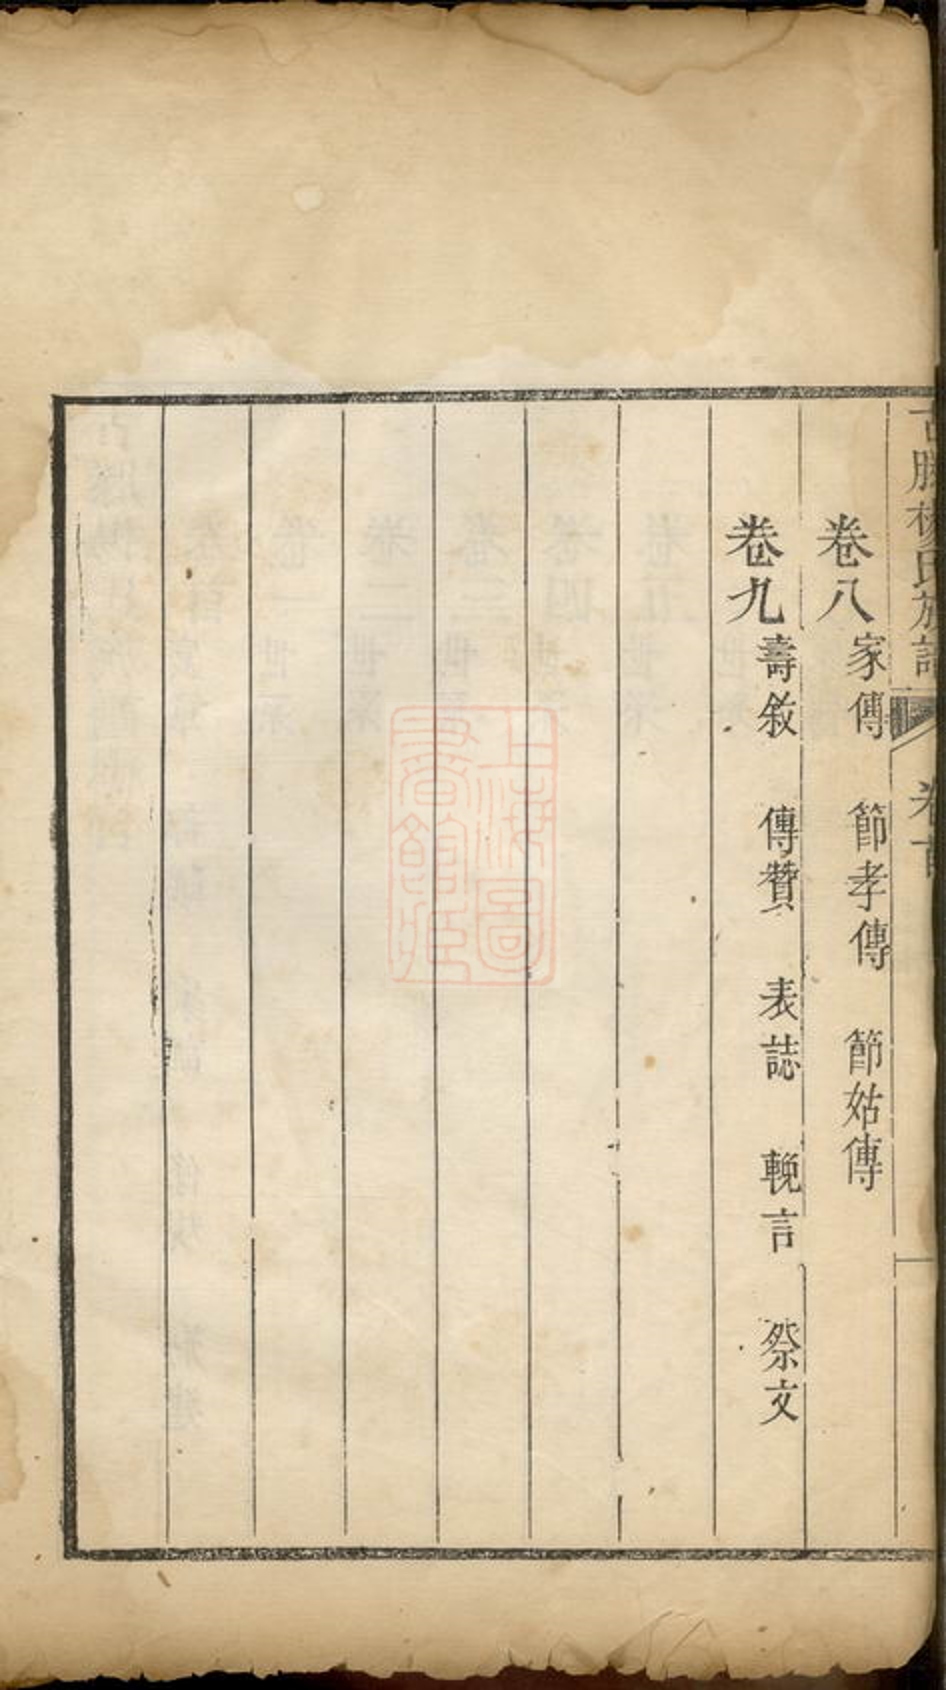 古勝楊氏族譜 卷首
卷八 家傳 節孝傳 節姑傳
卷九 壽敘 傳贊 表誌 輓言 祭文
上海圖
書館藏